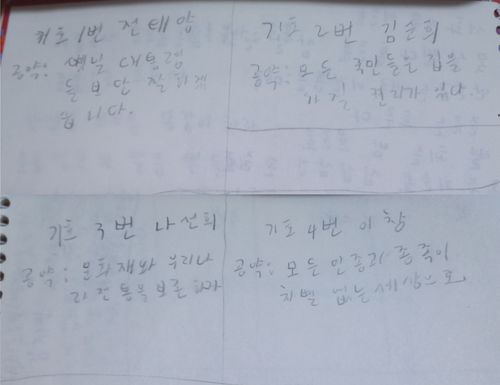 기호 1번 전태양
공약: 옛날 대통령
들보단 잘 되게
읍니다.
기호 2번 김순희
공약: 모든 국민들은 집을
가질 권리가 있다
기호 3번 나선희
공약: 문화재와 우리나
라 전통을 보존하라
기호 4번 이창
공약: 모든 인종과 종족이
차별 없는 세상으로